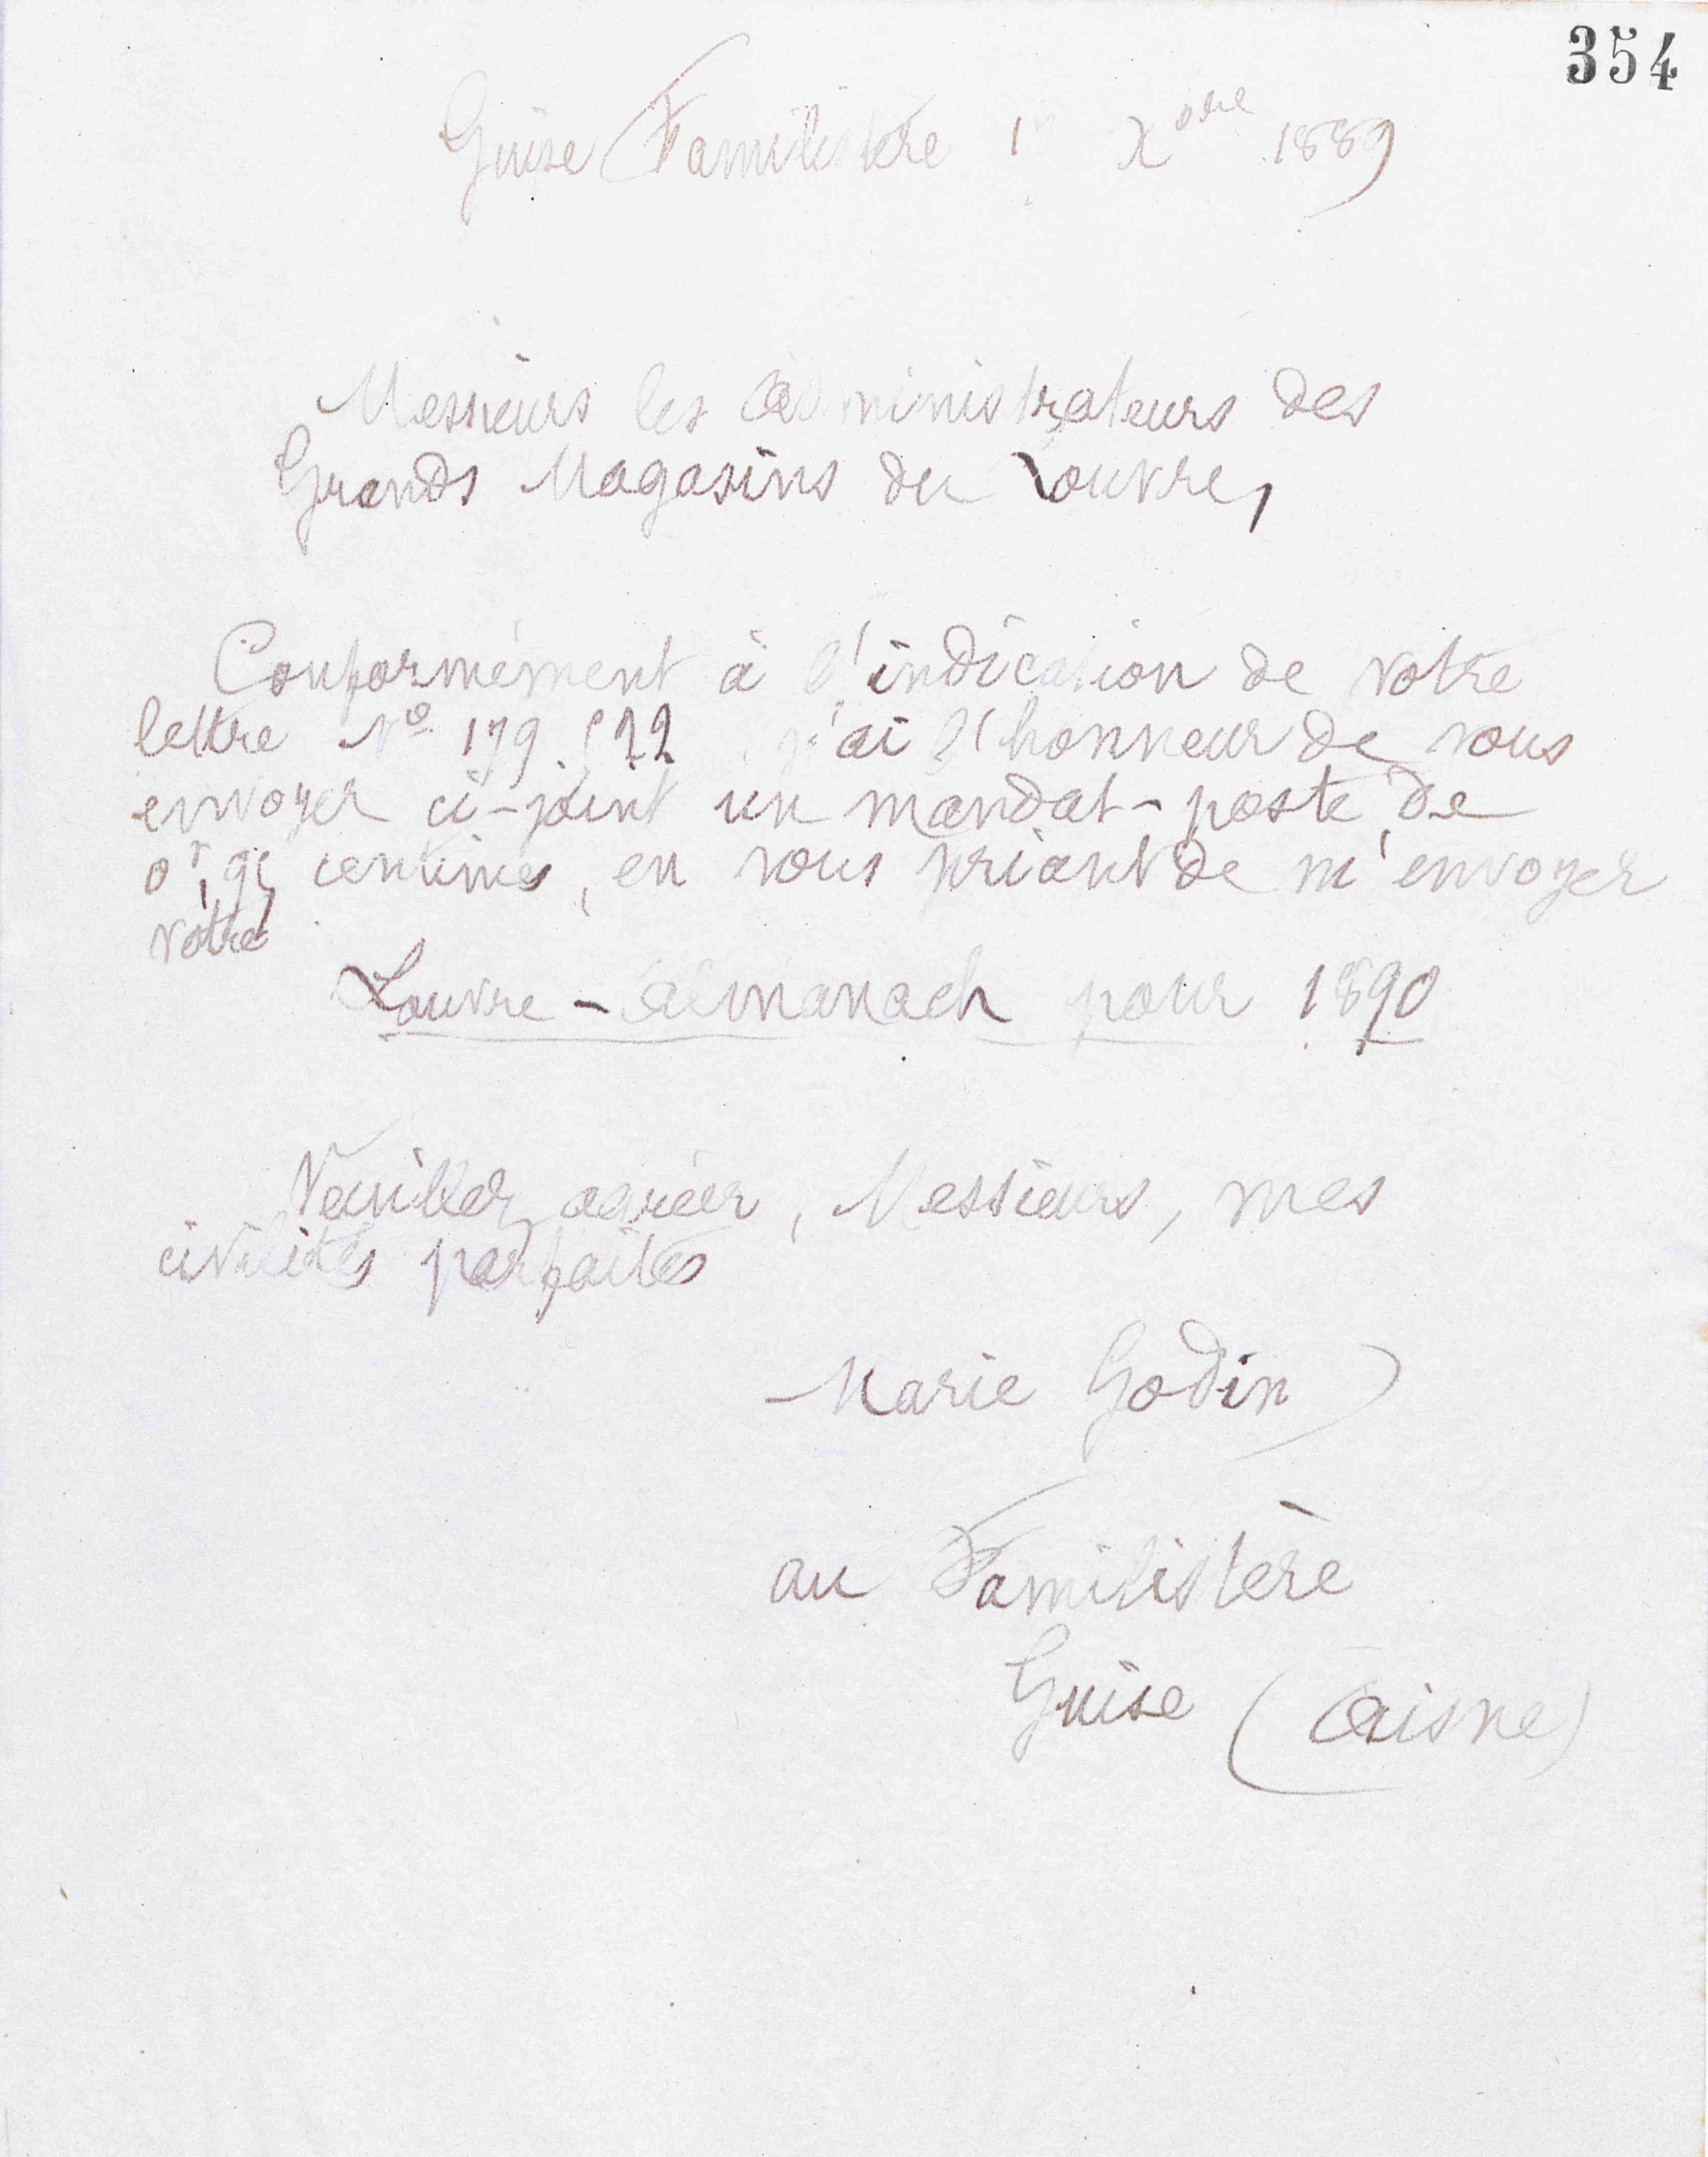 354
Guise Familistère 1 Xbre 1889
Messieurs les administrateurs des
Grands Magasins du Louvre,
Conformément à l'indication de votre
lettre No 179.522 j'ai l'honneur de vous
envoyer ci-joint un mandat-poste de
0f,95 centimes, en vous priant de m'envoyer
votre
Louvre-almanach pour 1890
Veuillez agréer, Messieurs, mes
civilités parfaites
Marie Godin
au Familistère
Guise (Aisne)